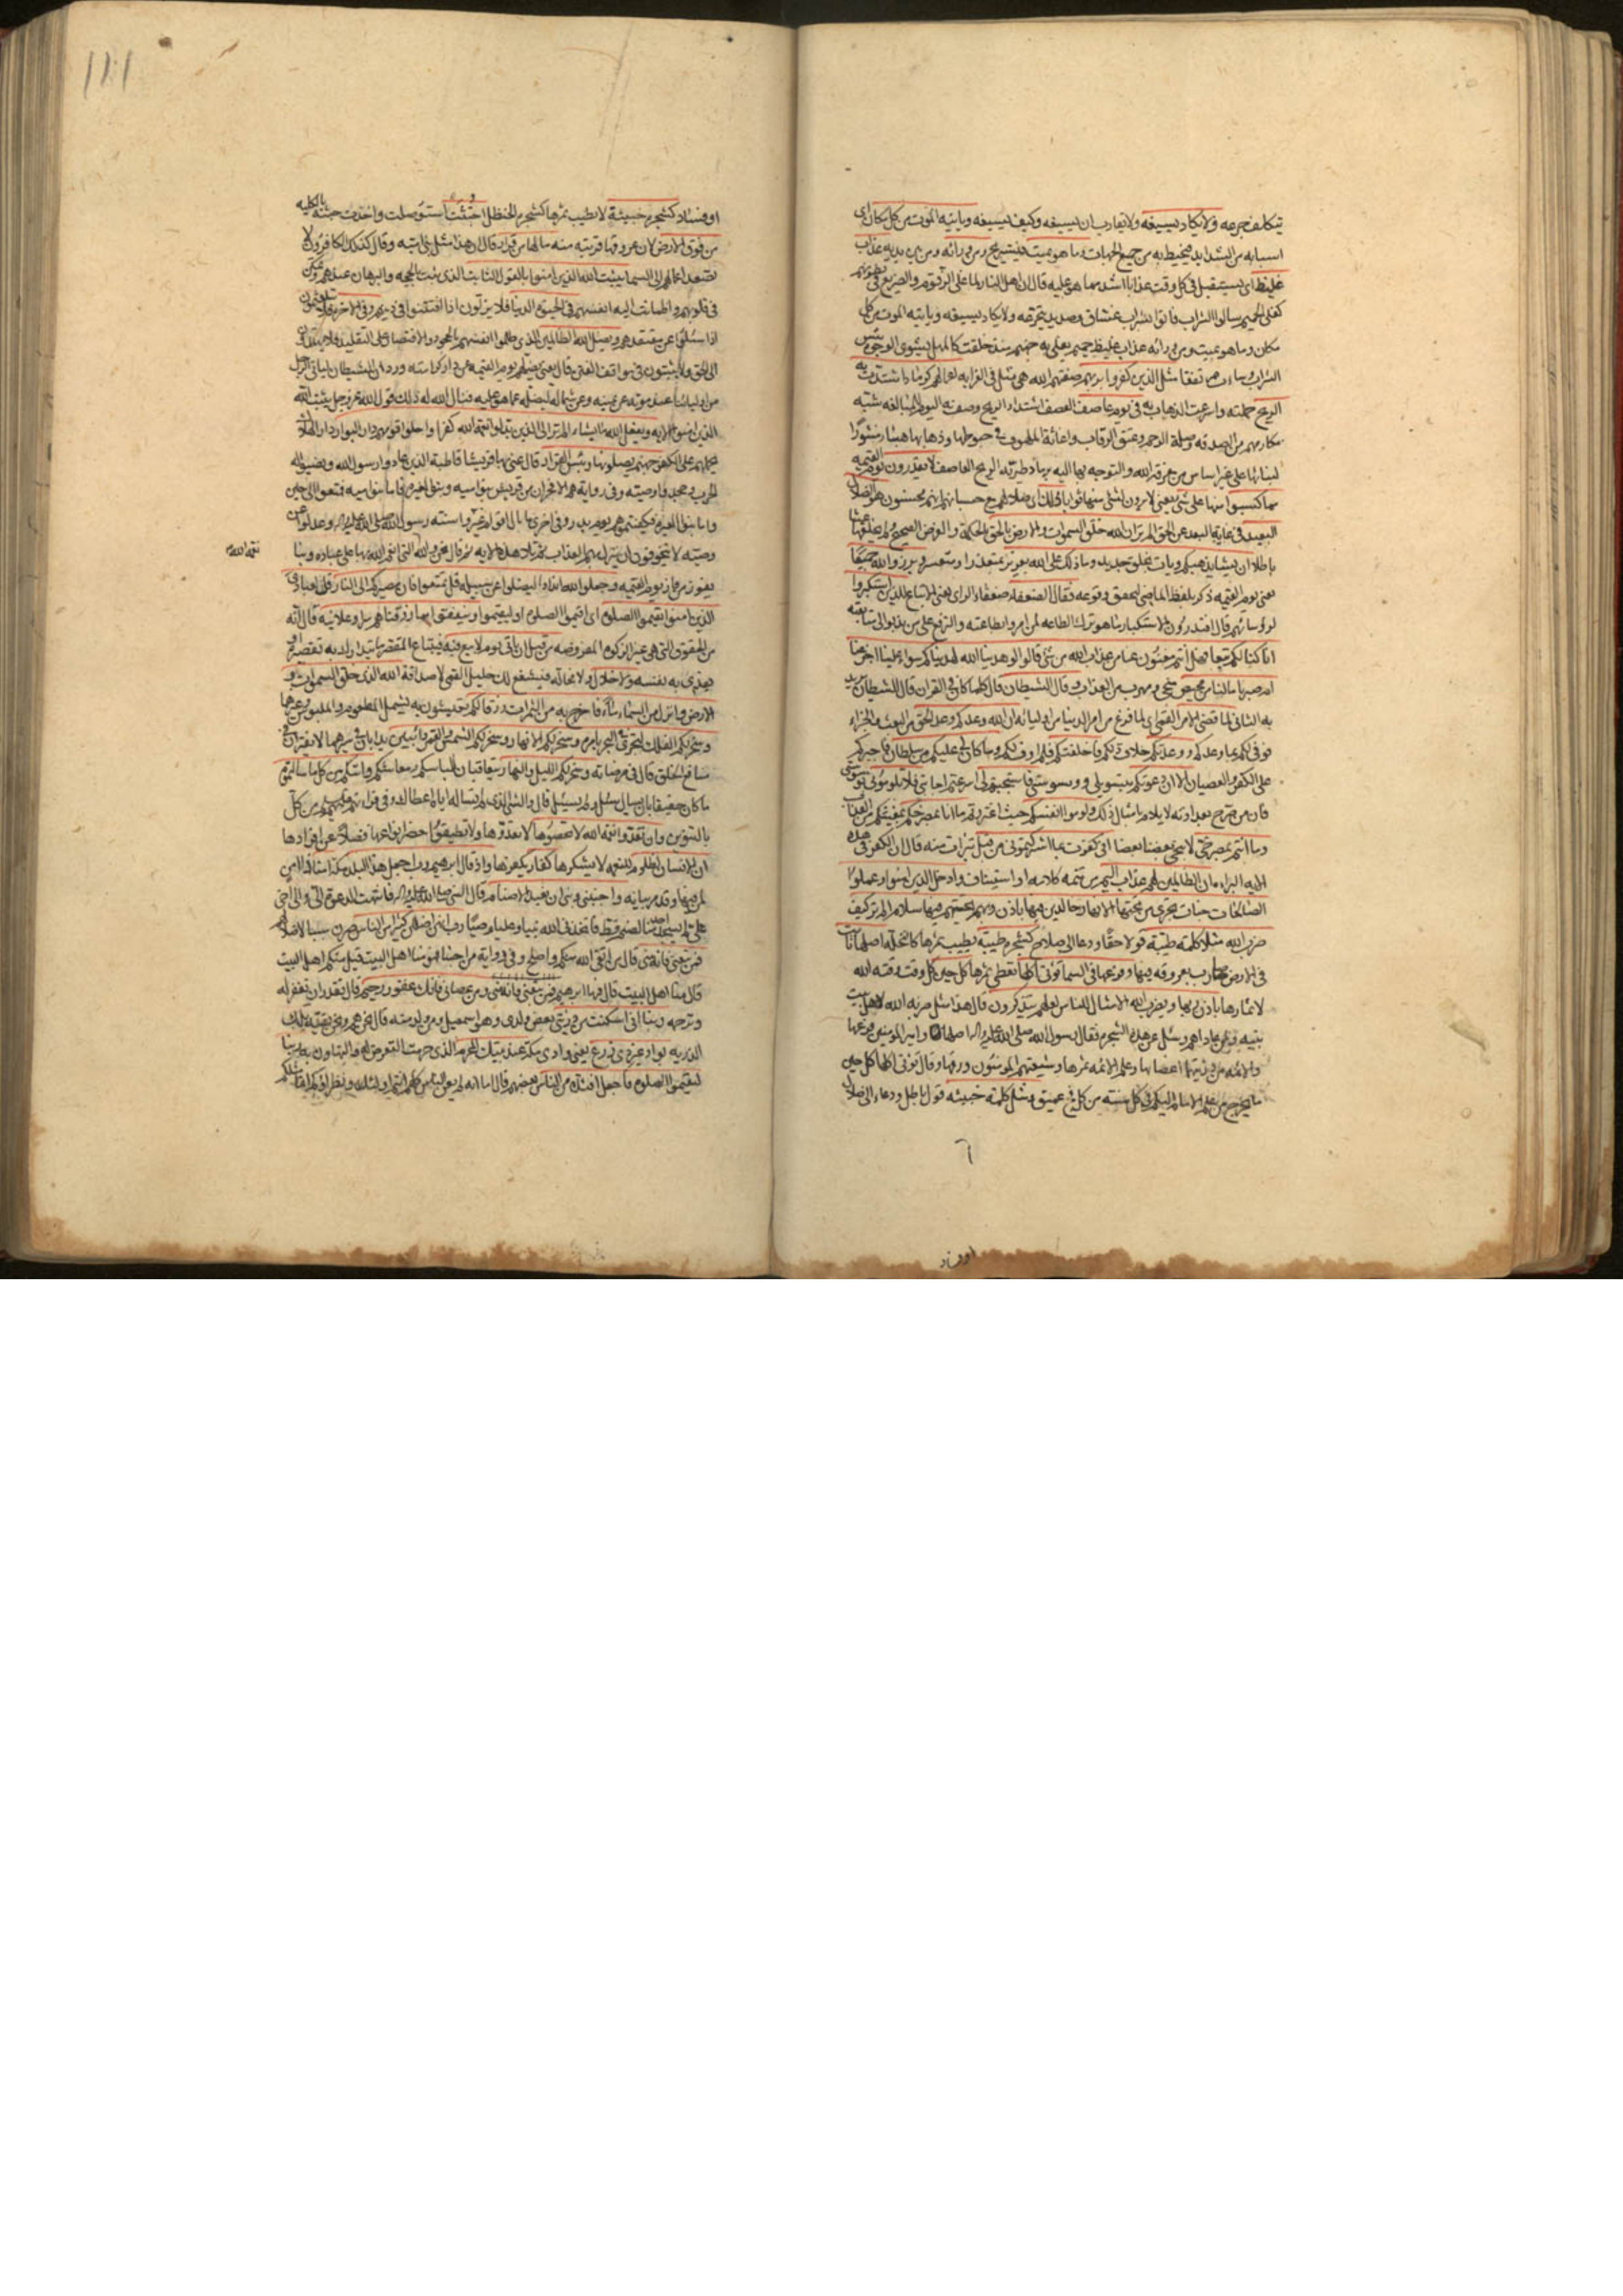 يتكلف جرعه ولا يكاد يسيغه ولا يقارب ان يسيغه وكيف يسيغه وياتيه الموت من كل مكان اى
اسبابه من الشدايد فيحيط به من جميع الجهات وما هو بميت فيستريح ومن ورائه ومن بين يديه عذاب
غليظ اى يستقبل فى كل وقت عذابا اشد مما هو عليه قال ان اهل النار لما غلى الزقوم والضريع فى بطونهم
كغلى الحميم سالوا الشراب فاتوا بشراب غساق وصديد يتجرعه ولا يكاد يسيغه وياتيه الموت من كل
مكان وما هو بميت ومن ورائه عذاب غليظ حميم يغلى به جهنم منذ خلقت كالمهل يشوى الوجوه بئس
الشراب وساءت مرتفقا مثل الذين كفروا بربهم صفتهم التى هى مثل فى الغرابة اعمالهم كرماد اشتدت به
الريح حملته واسرعت الذهاب به فى يوم عاصف العصف اشتداد الريح وصف به اليوم للمبالغه شبه
مكارمهم من الصدقه وصلة الرحم وعتق الرقاب واغاثة الملهوف فى حبوطها وذهابها هباء منثورا
لبنائها على غير اساس من معرفة الله والتوجه بها اليه برماد طيرته الريح العاصف لا يقدرون يوم القيمه
مما كسبوا منها على شئ يعنى لا يرون لشئ منها ثوابا ذلك اى ضلالهم مع حسبانهم انهم محسنون هو الضلال
البعيد فى غاية البعد عن الحق الم تر ان الله خلق السموات والارض بالحق بالحكمة والغرض الصحيح ولم يخلقها عبثا
باطلا ان يشا يذهبكم ويات بخلق جديد وما ذلك على الله بعزيز بمتعذر او متعسر وبرزوا لله جميعا
يعنى يوم القيمه ذكر بلفظ الماضى لتحقق وقوعه فقال الضعفاء ضعفاء الراى يعنى الاتباع للذين استكبروا
لرؤسائهم قال افتدرون الاستكبار ما هو ترك الطاعه لمن امروا بطاعته والترفع على من ندبوا الى متابعته
انا كنا لكم تبعا فهل انتم مغنون عنا من عذاب الله من شئ قالوا لو هدينا الله لهديناكم سواء علينا اجزعنا
ام صبرنا ما لنا من محيص منجى ومهرب من العذاب وقال الشيطان قال كلما كان فى القران قال الشيطان يريد
به الثانى لما قضى الامر القمى اى لما فرغ من امر الدنيا من اوليائه ان الله وعدكم وعد الحق من البعث والجزاء
فوفى لكم بما وعدكم ووعدتكم خلاف ذلكم فاخلفتكم فلم اوف لكم وما كان لى عليكم من سلطان فاجبركم
على الكفر والعصيان الا ان دعوتكم بتسويلى ووسوستى فاستجبتم لى اسرعتم اجابتى فلا تلومونى بوسوستى
فان من صرح بعداوته لا يلام بامثال ذلك ولوموا انفسكم حيث اغتررتم ما انا بمصرخكم بمغيثكم من العذاب
وما انتم بمصرخى لا ينجى بعضنا بعضا انى كفرت بما اشركتمونى من قبل تبرات منه قال ان الكفر فى هذه
الايه البراءه ان الظالمين لهم عذاب اليم من تتمه كلامه او استيناف وادخل الذين امنوا وعملوا
الصالحات جنات تجرى من تحتها الانهار خالدين فيها باذن ربهم تحيتهم فيها سلام الم تر كيف
ضرب الله مثلا كلمة طيبة قولا حقا ودعا الى صلاح كشجرة طيبة يطيب ثمرها كالنخله اصلها ثابت
فى الارض ضارب بعروقه فيها وفرعها فى السما تؤتى اكلها تعطى ثمرها كل حين كل وقت وقته الله
لاثمارها باذن ربها ويضرب الله الامثال للناس لعلهم يتذكرون قال هذا مثل ضربه الله لاهل بيت
نبيه ومن عاداهم وسئل عن هذه الشجرة فقال رسول الله صلى الله عليه واله اصلها وامير المومنين فرعها
والائمه من ذريتهما اغصانها وعلم الائمه ثمرها وشيعتهم المومنون ورقها وقال تؤتى اكلها كل حين
ما يخرج من علم الامام اليكم فى كل سنته من كل فج عميق ومثل كلمة خبيثه قول باطل ودعاء الى ضلال
او فساد
او فساد كشجرة خبيثة لا يطيب ثمرها كشجرة الحنظل اجتثت استوصلت واخذت جثته بالكليه
من فوق الارض لان عروقها قريبه منه ما لها من قرار قال ان هذا مثل بنى اميه وقال كذلك الكافرون لا
تصعد اعمالهم الى السما يثبت الله الذين امنوا بالقول الثابت الذى ثبت بالحجه والبرهان عندهم وتمكن
فى قلوبهم واطمانت اليه انفسهم فى الحيوة الدنيا فلا يزلون اذا افتتنوا فى دينهم وفى الاخرة فلا يتلعثمون
اذا سئلوا عن معتقدهم ويضل الله الظالمين الذى ظلموا انفسهم بالجحود والاقتصار على التقليد فلا يهتدون
الى الحق ولا يثبتون فى مواقف الفتن قال يعنى يضلهم يوم القيمه عن دار كرامته ورد ان الشيطان لياتى الرجل
من اوليائنا عند موته عن يمينه وعن شماله ليضله عما هو عليه فيابى الله له ذلك قول الله عز وجل يثبت الله
الذين امنوا الايه ويفعل الله ما يشاء الم تر الى الذين بدلوا نعمة الله كفرا واحلوا قومهم دار البوار دار الهلاك
بحملهم على الكفر جهنم يصلونها وبئس القرار قال عنى بها قريشا قاطبة الذين عادوا رسول الله ونصبوا له
الحرب وجحدوا وصيته وفى رواية هم الافجران من قريش بنو اميه وبنو المغيره فاما بنو اميه فمتعوا الى حين
واما بنو المغيره فكفيتموهم يوم بدر وفى اخرى ما بال اقوام غيروا سنته رسول الله صلى الله عليه واله وعدلوا عن
وصيته لا يتخوفون ان ينزل بهم العذاب ثم تلا هذه الايه ثم قال نحن والله التى انعم الله بها على عباده وبنا
نعمة الله
يفوز من فاز يوم القيمه وجعلوا لله اندادا ليضلوا عن سبيله قل تمتعوا فان مصيركم الى النار قل لعبادى
الذين امنوا يقيموا الصلوة اى اقيموا الصلوة او ليقيموا وينفقوا مما رزقناهم سرا وعلانيه قال انه
من الحقوق التى هى غير الزكوة المفروضه من قبل ان ياتى يوم لا بيع فيه فيبتاع المقصر ما يتدارك به تقصيره او
يفدى به نفسه ولا خلال ولا مخاله فيشفع لك خليل القمى لا صداقة الله الذى خلق السموات و
الارض وانزل من السماء ماء فاخرج به من الثمرات رزقا لكم تعيشون به يشمل المطعوم والملبوس وغيرهما
وسخر لكم الفلك لتجرى فى البحر بامره وسخر لكم الانهار وسخر لكم الشمس والقمر دائبين يدابان فى سيرهما لا يفتران فى
منافع الخلق قال فى مرضاته وسخر لكم الليل والنهار يتعاقبان للباسكم ومعاشكم واتيكم من كل ما سالتموه
ما كان حقيقا بان يسال سئل او لم يسئل قال والشئ الذى لم تساله اياه اعطاك وفى قراءتهم عليهم السلام من كل
بالتنوين وان تعدوا نعمة الله لا تحصوها لا تعدوها ولا تطيقوا حصر انواعها فضلا عن افرادها
ان الانسان لظلوم للنعمه لا يشكرها كفار يكفرها واذ قال ابرهيم رب اجعل هذا البلد مكة امنا ذا امن
لمن فيها وقد مر بيانه واجنبنى وبنى ان نعبد الاصنام قال النبى صلى الله عليه واله فانتهت الدعوة الى والى اخى
على لم يسجد احد منا لصنم قط فاتخذنى الله نبيا وعليا وصيا رب انهن اضللن كثيرا من الناس صرن سببا لاضلالهم
فمن تبعنى فانه منى قال من اتقى الله منكم واصلح وفى رواية من احبنا فهو منا اهل البيت قيل منكم اهل البيت
قال منا اهل البيت قال فيها ابرهيم فمن تبعنى فانه منى ومن عصانى فانك غفور رحيم قال تقدر ان تغفر له
وترحمه ربنا انى اسكنت من ذريتى بعض ولدى وهو اسمعيل ومن ولد منه قال نحن هم ونحن بقيه تلك
الذريه بواد غير ذى زرع يعنى وادى مكة عند بيتك المحرم الذى حرمت التعرض له والتهاون به ربنا
ليقيموا الصلوة فاجعل افئدة من الناس بعضهم قال اما انه لم يعن الناس كلهم انتم اولئك ونظراؤكم انما مثلكم